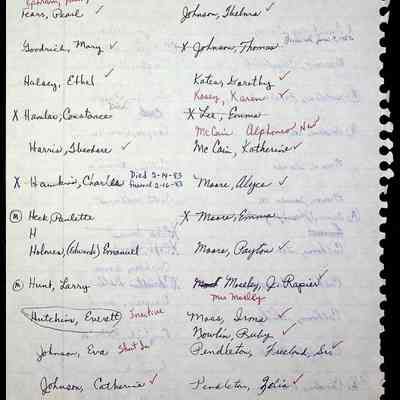 Fears, Pearl ✓
Goodrich, Mary ✓
Halsey, Ethel ✓
X Hamler, Constance
Harris, Theodore ✓
X Hawkins, Charles Died 2-14-83
Funeral 2-16-83
(M) Heck, Paulette
H
Holmes, (Edwards) Emanuel
(M) Hunt, Larry
Hutchins, Everett Inactive
Johnson, Eva Shut In
Johnson, Catherine ✓
Johnson, Thelma ✓
X Johnson, Thomas
Kates, Dorothy ✓
Kasey, Karen ✓
X Lee, Emma
McCain Alphonso ✓
McCain, Katherine ✓
Moore, Alyce ✓
X Moore, Emma
Moore, Payton ✓
Mosley, J. Rapier ✓
Mrs Moseley
Moss, Irons ✓
Nowlin, Ruby ✓
Pendleton, Freeland, Sr ✓
Pendleton, Zelia ✓